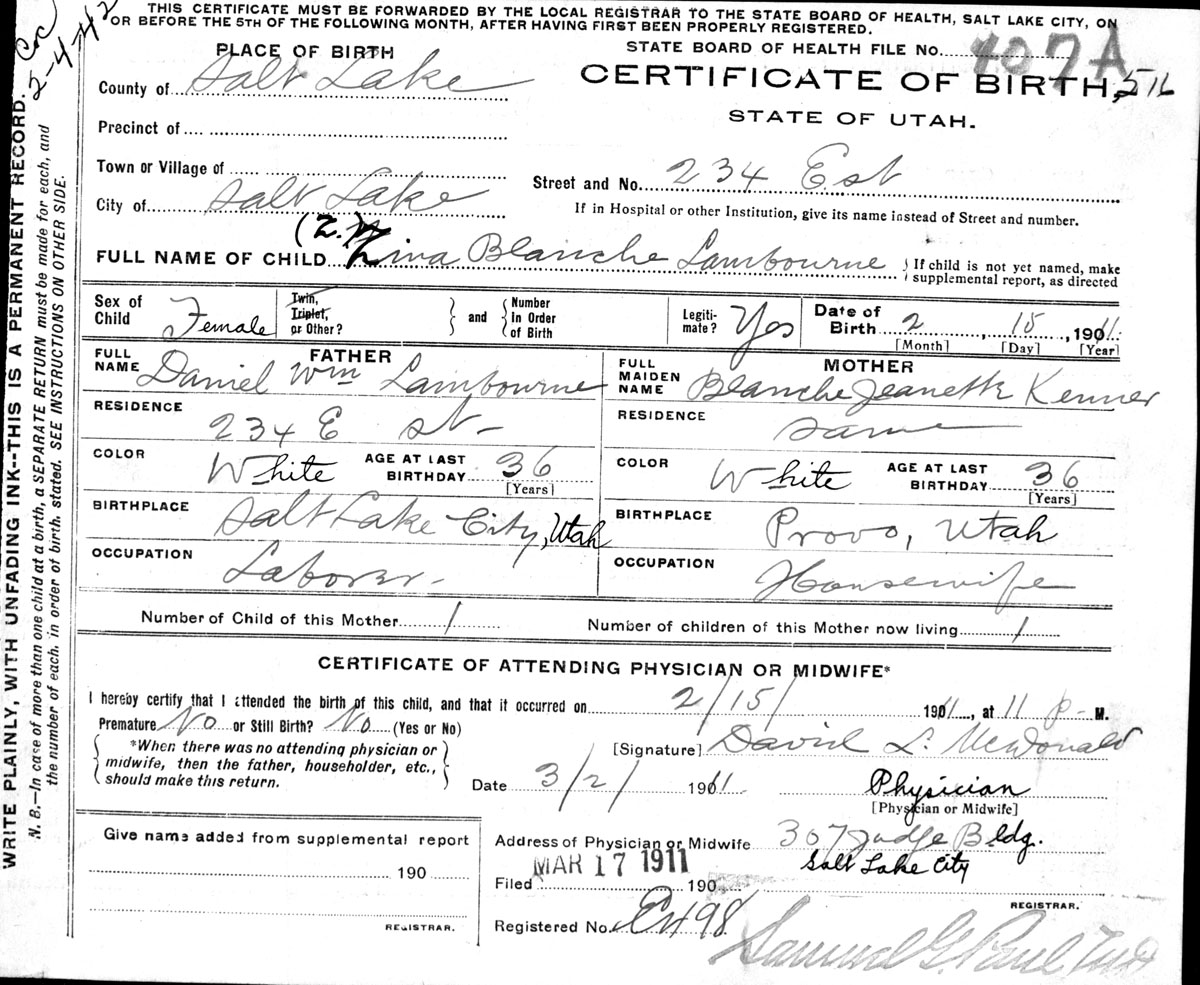 THIS CERTIFICATE MUST BE FORWARDED BY THE LOCAL REGISTRAR TO THE STATE BOARD OF HEALTH, SALT LAKE CITY, ON
OR BEFORE THE 5TH OF THE FOLLOWING MONTH, AFTER HAVING FIRST BEEN PROPERLY REGISTERED.
2-4-42
WRITE PLAINLY, WITH UNFADING INK--THIS IS A PERMANENT RECORD.
N. B.—In case of more than one child at a birth, a SEPARATE RETURN must be made for each, and
the number of each, in order of birth, stated. SEE INSTRUCTIONS ON OTHER SIDE.
PLACE OF BIRTH
STATE BOARD OF HEALTH FILE No. 107A
County of Salt Lake
CERTIFICATE OF BIRTH, 516
STATE OF UTAH.
Precinct of
Town or Village of
Street and No. 234 E st
City of Salt Lake
If in Hospital or other Institution, give its name instead of Street and number.
(Z.)
FULL NAME OF CHILD Zina Blanche Lambourne
If child is not yet named, make
supplemental report, as directed
Sex of Child Female
Twin, Triplet, or Other?
and
Number In Order of Birth
Legitimate? Yes
Date of Birth 2 15, 1911.
[Month] [Day] [Year]
FATHER
FULL NAME Daniel Wm Lambourne
RESIDENCE 234 E st-
COLOR White AGE AT LAST BIRTHDAY 36
[Years]
BIRTHPLACE Salt Lake City, Utah
OCCUPATION Laborer-
MOTHER
FULL MAIDEN NAME Blanche Jeanette Kenner
RESIDENCE Same
COLOR White AGE AT LAST BIRTHDAY 36
[Years]
BIRTHPLACE Provo, Utah
OCCUPATION Housewife
Number of Child of this Mother 1 Number of children of this Mother now living 1
CERTIFICATE OF ATTENDING PHYSICIAN OR MIDWIFE*
I hereby certify that I attended the birth of this child, and that it occurred on 2/15/ 1911, at 11 p- M.
Premature No or Still Birth? No (Yes or No)
*When there was no attending physician or
midwife, then the father, householder, etc.,
should make this return.
[Signature] David L. McDonald
Date 3/2/ 1911
Physician
[Physician or Midwife]
Give name added from supplemental report
190
REGISTRAR.
Address of Physician or Midwife 307 Judge Bldg.
Salt Lake City
Filed MAR 17 1911 190
REGISTRAR.
Registered No. 498
Samuel G. Paul